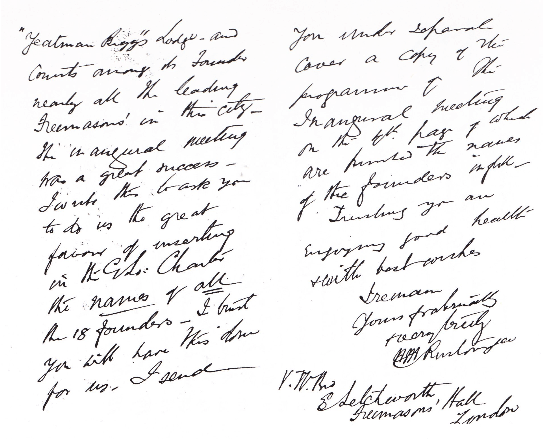 "Yeatman Biggs" Lodge - and
Counts among its Founders
nearly all the leading
Freemasons' in this city -
The inaugural meeting
was a great success -
I write this to ask you
to do us the great
favour of inserting
in the Charter
the names of all
the 18 founders - I trust
you will have this done
for us. I send
You under separate
cover a copy of the
programme of the
Inaugural meeting
on the 4th page of which
are printed the names
of the founders in full -
Trusting you are
enjoying good health
& with best wishes
I remain
Yours fraternally
& very truly
V. W. Bro
E Letchworth
Freemasons' Hall
London